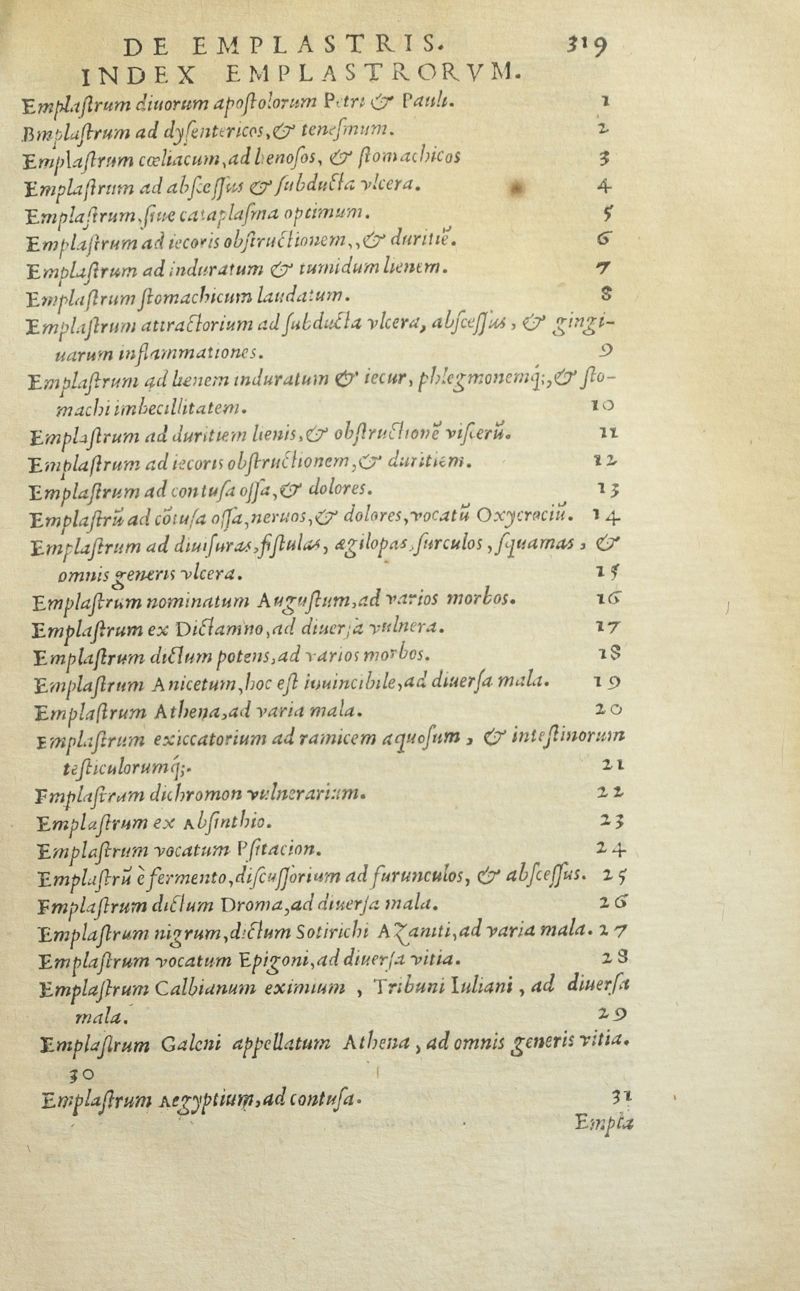 DE EMPLASTRIS. 319
INDEX EMPLASTRORVM.
Emplaſtrum diuorum apoſtolorum Petri & Pauli. 1
Emplaſtrum ad dyſentericos, & teneſmum. 2
Emplaſtrum cœliacum, ad lienoſos, & ſtomachicos 3
Emplaſtrum ad abſceſſus & ſubducta vlcera. 4
Emplaſtrum, ſiue cataplaſma optimum. 5
Emplaſtrum ad iecoris obſtructionem,, & duritiē. 6
Emplaſtrum ad induratum & tumidum lienem. 7
Emplaſtrum ſtomachicum laudatum. 8
Emplaſtrum attractorium ad ſubducta vlcera, abſceſſus, & gingi-
uarum inflammationes. 9
Emplaſtrum ad lienem induratum & iecur, phlegmonemq;, & ſto-
machi imbecillitatem. 10
Emplaſtrum ad duritiem lienis, & obſtructionē viſcerū. 11
Emplaſtrum ad iecoris obſtructionem, & duritiem. 12
Emplaſtrum ad contuſa oſſa, & dolores. 13
Emplaſtrū ad cōtuſa oſſa, neruos, & dolores, vocatū Oxycrociū. 14
Emplaſtrum ad diuiſuras, fiſtulas, ægilopas, ſurculos, ſquamas, &
omnis generis vlcera. 15
Emplaſtrum nominatum Auguſtum, ad varios morbos. 16
Emplaſtrum ex Dictamno, ad diuerſa vulnera. 17
Emplaſtrum dictum potens, ad varios morbos. 18
Emplaſtrum Anicetum, hoc eſt inuincibile, ad diuerſa mala. 19
Emplaſtrum Athena, ad varia mala. 20
Emplaſtrum exiccatorium ad ramicem aquoſum, & inteſtinorum
teſticulorumq;. 21
Emplaſtrum dichromon vulnerarium. 22
Emplaſtrum ex Abſinthio. 23
Emplaſtrum vocatum Pſitacion. 24
Emplaſtrū è fermento, diſcuſſorium ad furunculos, & abſceſſus. 25
Emplaſtrum dictum Droma, ad diuerſa mala. 26
Emplaſtrum nigrum, dictum Sotirichi Azaniti, ad varia mala. 27
Emplaſtrum vocatum Epigoni, ad diuerſa vitia. 28
Emplaſtrum Calbianum eximium, Tribuni Iuliani, ad diuerſa
mala. 29
Emplaſtrum Galeni appellatum Athena, ad omnis generis vitia.
30
Emplaſtrum Aegyptium, ad contuſa. 31
Empla